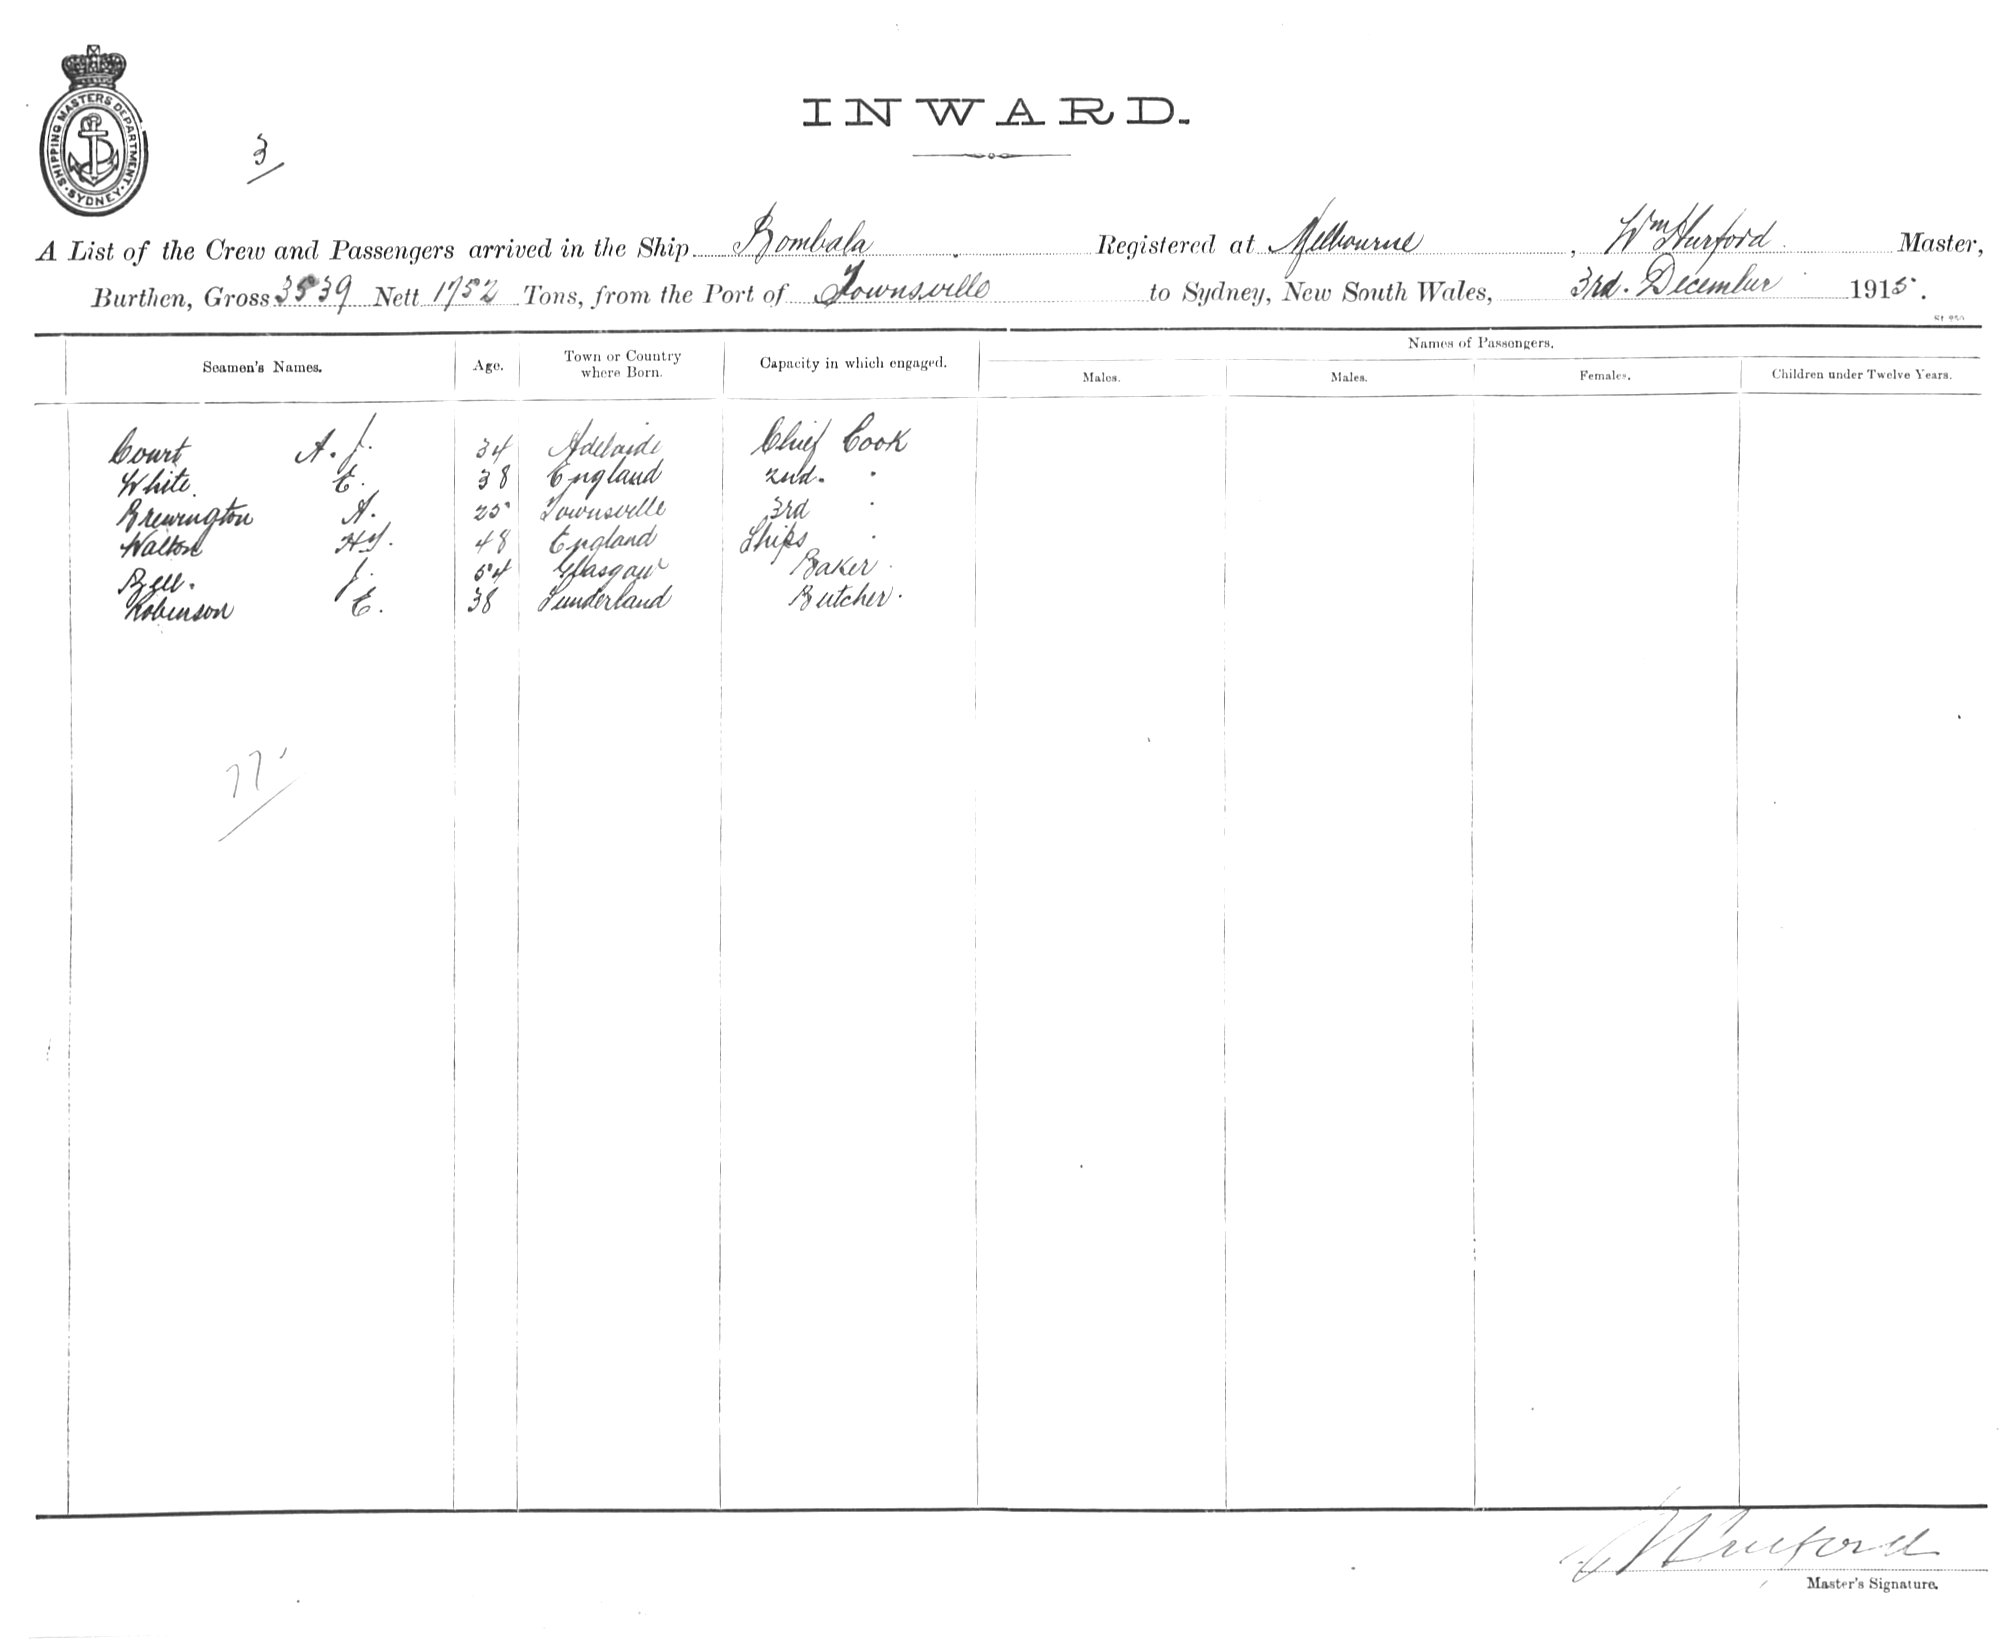 SHIPPING MASTERS DEPARTMENT
SYDNEY
INWARD.
3
A List of the Crew and Passengers arrived in the Ship Bombala Registered at Melbourne, Wm Hurford Master,
Burthen, Gross 3539 Nett 1752 Tons, from the Port of Townsville to Sydney, New South Wales, 3rd. December 1915.
Names of Passengers.
Seamen's Names. Age. Town or Country where Born. Capacity in which engaged. Males. Males. Females. Children under Twelve Years.
Court A. J. 34 Adelaide Chief Cook
White E. 38 England 2nd. "
Brewington A. 25 Townsville 3rd "
Walton Hy. 48 England Ships "
Bell. J. 54 Glasgow Baker.
Robinson E. 38 Sunderland Butcher.
77
Hurford
Master's Signature.